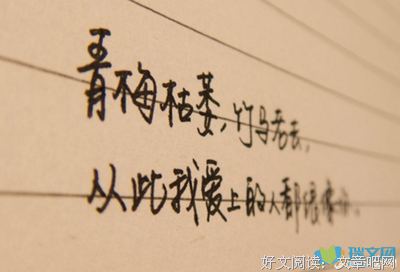 青梅枯萎,竹马老去,
从此我爱上的人都很像你.
好文阅读:文章吧网
瑞文网